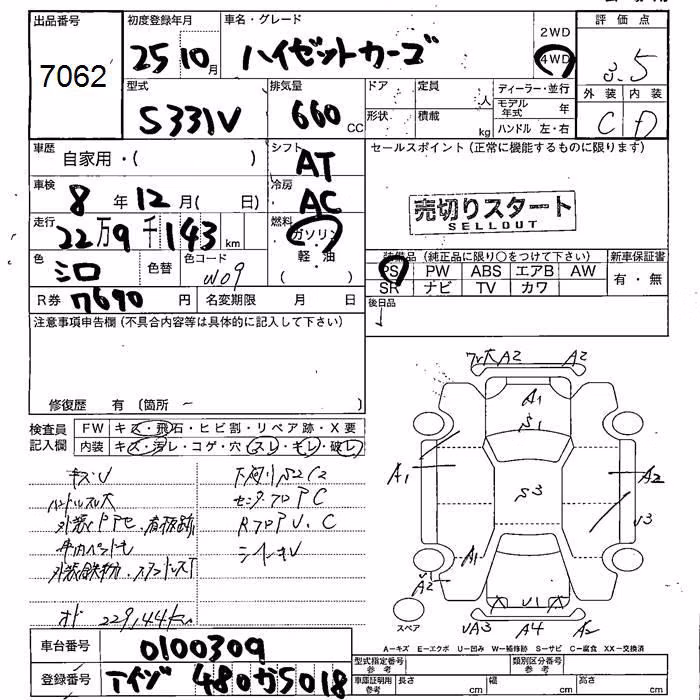 出品番号
7062
初度登録年月
25 10月
車名・グレード
ハイゼットカーゴ
2WD
4WD
評価点
3.5
外装 内装
C D
型式
S331V
排気量
660 CC
ドア 定員 人
形状 積載 kg
ディーラー・並行
モデル年式 年
ハンドル 左・右
車歴
自家用・( )
シフト
AT
セールスポイント (正常に機能するものに限ります)
売切りスタート
SELLOUT
車検
8年 12月( 日)
冷房
AC
走行
22万9千143 km
燃料
ガソリン
軽・油
( )
色
シロ
色替
色コード
W09
装備品 (純正品に限り○をつけて下さい)
PS PW ABS エアB AW
SR ナビ TV カワ
新車保証書
有・無
R券 7690 円
名変期限 月 日
後日品
注意事項申告欄 (不具合内容等は具体的に記入して下さい)
修復歴 有 (箇所 ー )
検査員記入欄
FW キズ・飛石・ヒビ割・リペア跡・X要
内装 キズ・汚レ・コゲ・穴・スレ・キレ・破レ
キズU
ハンドルスレ大
下廻りS2C2
センターフロアPC
RフロアU、C
オド 229,144km
A2 A2
A1
S1
A1
S3
A2
U3
A1
A2
U1
UA3 A4 A2
スペア
A-キズ E-エクボ U-凹み W-補修跡 S-サビ C-腐食 XX-交換済
車台番号
0100309
登録番号
480 5018
型式指定番号 参考
類別区分番号 参考
車庫証明用 参考
長さ cm
幅 cm
高さ cm